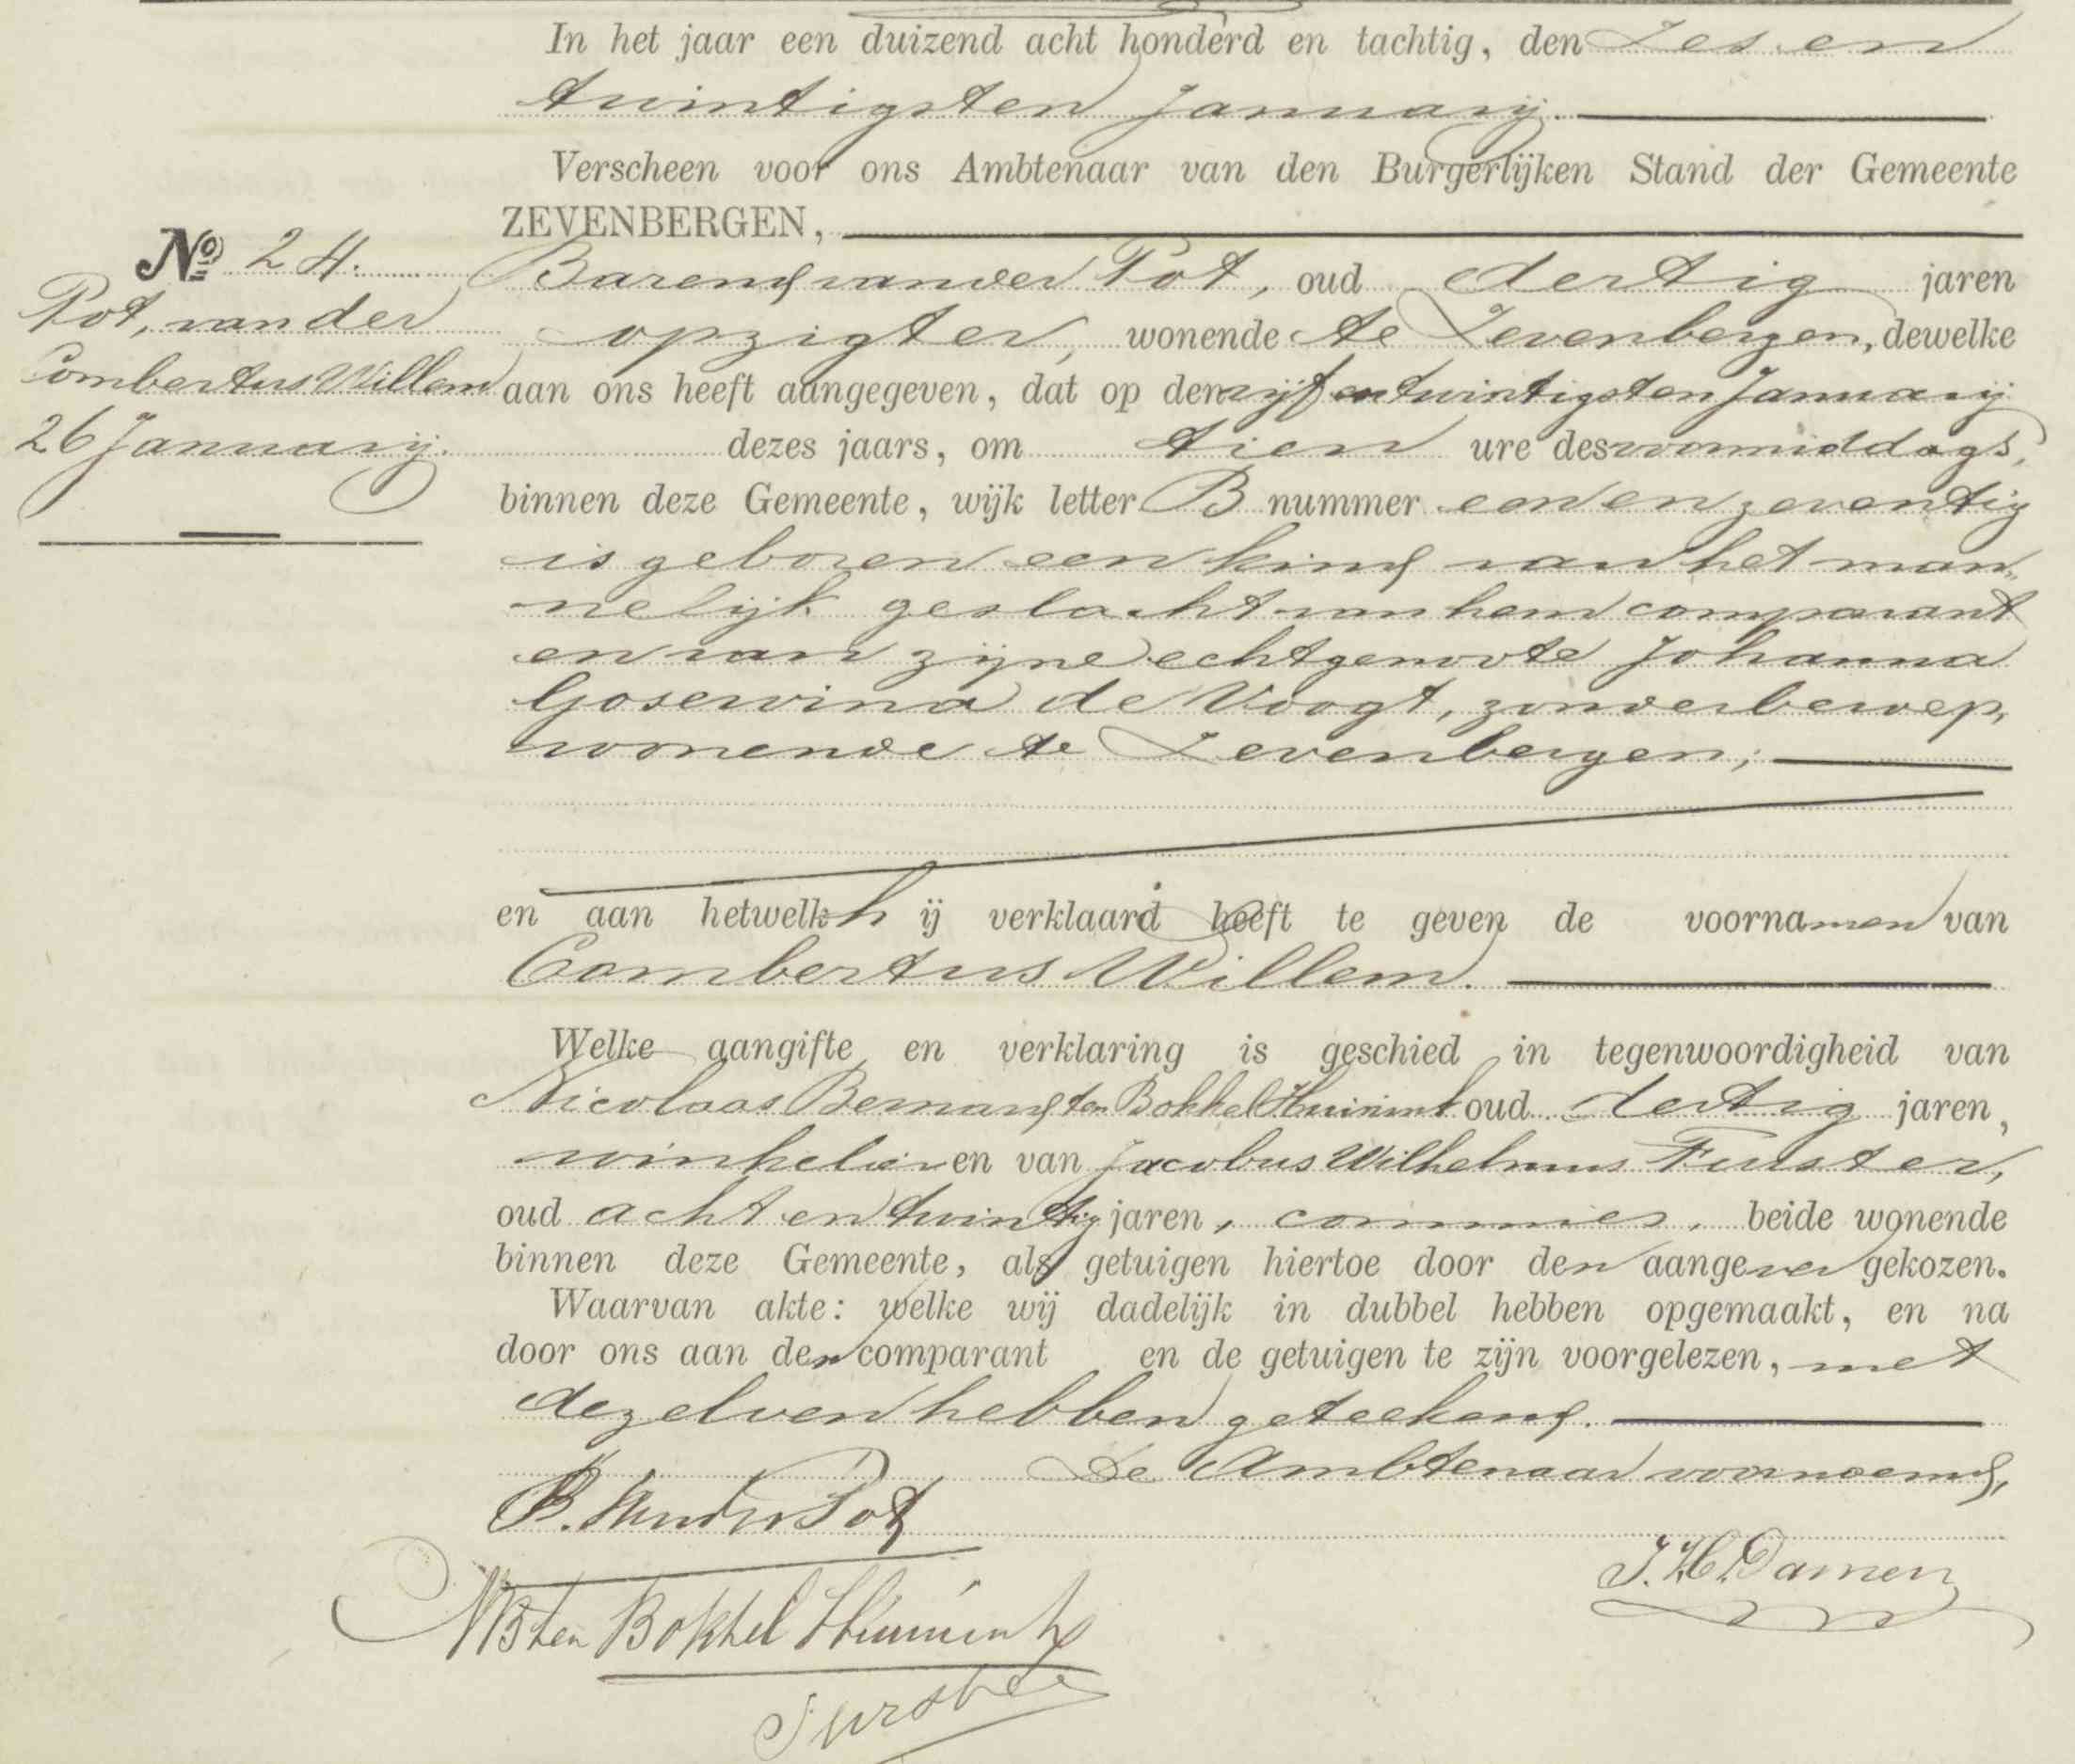 In het jaar een duizend acht honderd en tachtig, den Zes en
twintigsten Januarij.
Verscheen voor ons Ambtenaar van den Burgerlijken Stand der Gemeente
ZEVENBERGEN,
No 24.
Pot, van der
Combertus Willem
26 Januarij.
Barend van der Pot, oud dertig jaren
opzigter, wonende te Zevenbergen, dewelke
aan ons heeft aangegeven, dat op den vijf en twintigsten Januarij
dezes jaars, om tien ure des voormiddags,
binnen deze Gemeente, wijk letter B nummer een en zeventig
is geboren een kind van het man„
nelijk geslacht van hem comparant
en van zijne echtgenoote Johanna
Gosewina de Voogt, zonder beroep,
wonende te Zevenbergen;
en aan hetwelk hij verklaard heeft te geven de voornamen van
Combertus Willem.
Welke aangifte en verklaring is geschied in tegenwoordigheid van
Nicolaas Bernard ten Bokkel Huinink oud dertig jaren,
winkelier en van Jacobus Wilhelmus Furster,
oud acht en twintig jaren, commies, beide wonende
binnen deze Gemeente, als getuigen hiertoe door den aangever gekozen.
Waarvan akte: welke wij dadelijk in dubbel hebben opgemaakt, en na
door ons aan den comparant en de getuigen te zijn voorgelezen, met
dezelven hebben geteekend.
De Ambtenaar voornoemd,
B. van der Pot
J. H. Damen
NB ten Bokkel Huinink
Furster